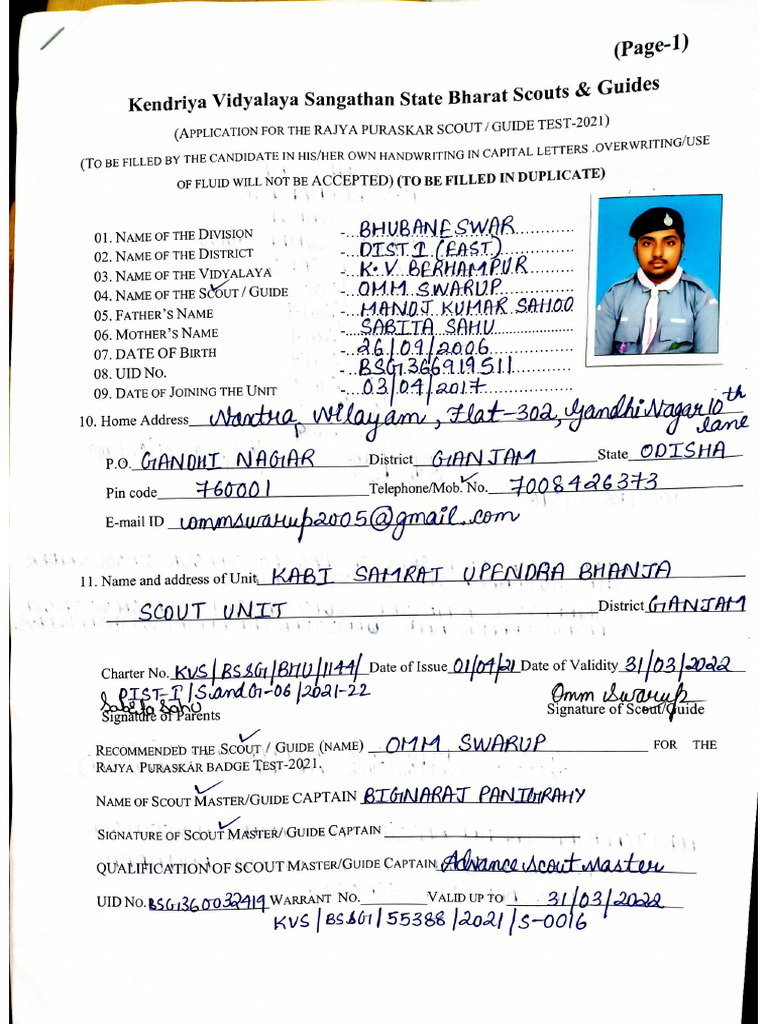 (Page-1)
Kendriya Vidyalaya Sangathan State Bharat Scouts & Guides
(APPLICATION FOR THE RAJYA PURASKAR SCOUT / GUIDE TEST-2021)
(TO BE FILLED BY THE CANDIDATE IN HIS/HER OWN HANDWRITING IN CAPITAL LETTERS .OVERWRITING/USE
OF FLUID WILL NOT BE ACCEPTED) (TO BE FILLED IN DUPLICATE)
01. NAME OF THE DIVISION -. BHUBANESWAR
02. NAME OF THE DISTRICT -. DIST I (EAST)
03. NAME OF THE VIDYALAYA -. K.V BERHAMPUR
04. NAME OF THE SCOUT / GUIDE -. OMM SWARUP
05. FATHER'S NAME -. MANOJ KUMAR SAHOO
06. MOTHER'S NAME -. SABITA SAHU
07. DATE OF BIRTH -. 26/09/2006
08. UID NO. -. BSG1366919511
09. DATE OF JOINING THE UNIT -. 03/04/2017
10. Home Address Nilayam, Flat-302, Gandhi Nagar 10th
lane
P.O. GANDHI NAGAR District GANJAM State ODISHA
Pin code 760001 Telephone/Mob. No. 7008426373
E-mail ID ommswarup2005@gmail.com
11. Name and address of Unit KABI SAMRAT UPENDRA BHANJA
SCOUT UNIT District GANJAM
Charter No. KVS/BSSG/BHU/1144/ Date of Issue 01/04/21 Date of Validity 31/03/2022
DIST-I/S.andG-06/2021-22
Sabita Sahu Omm Swarup
Signature of Parents Signature of Scout/Guide
RECOMMENDED THE SCOUT / GUIDE (NAME) OMM SWARUP FOR THE
RAJYA PURASKAR BADGE TEST-2021.
NAME OF SCOUT MASTER/GUIDE CAPTAIN BIGNARAJ PANIGRAHY
SIGNATURE OF SCOUT MASTER/ GUIDE CAPTAIN
QUALIFICATION OF SCOUT MASTER/GUIDE CAPTAIN Advance Scout Master
UID NO. BSG1360032419 WARRANT NO. VALID UP TO 31/03/2022
KVS/BSSG/55388/2021/S-0016